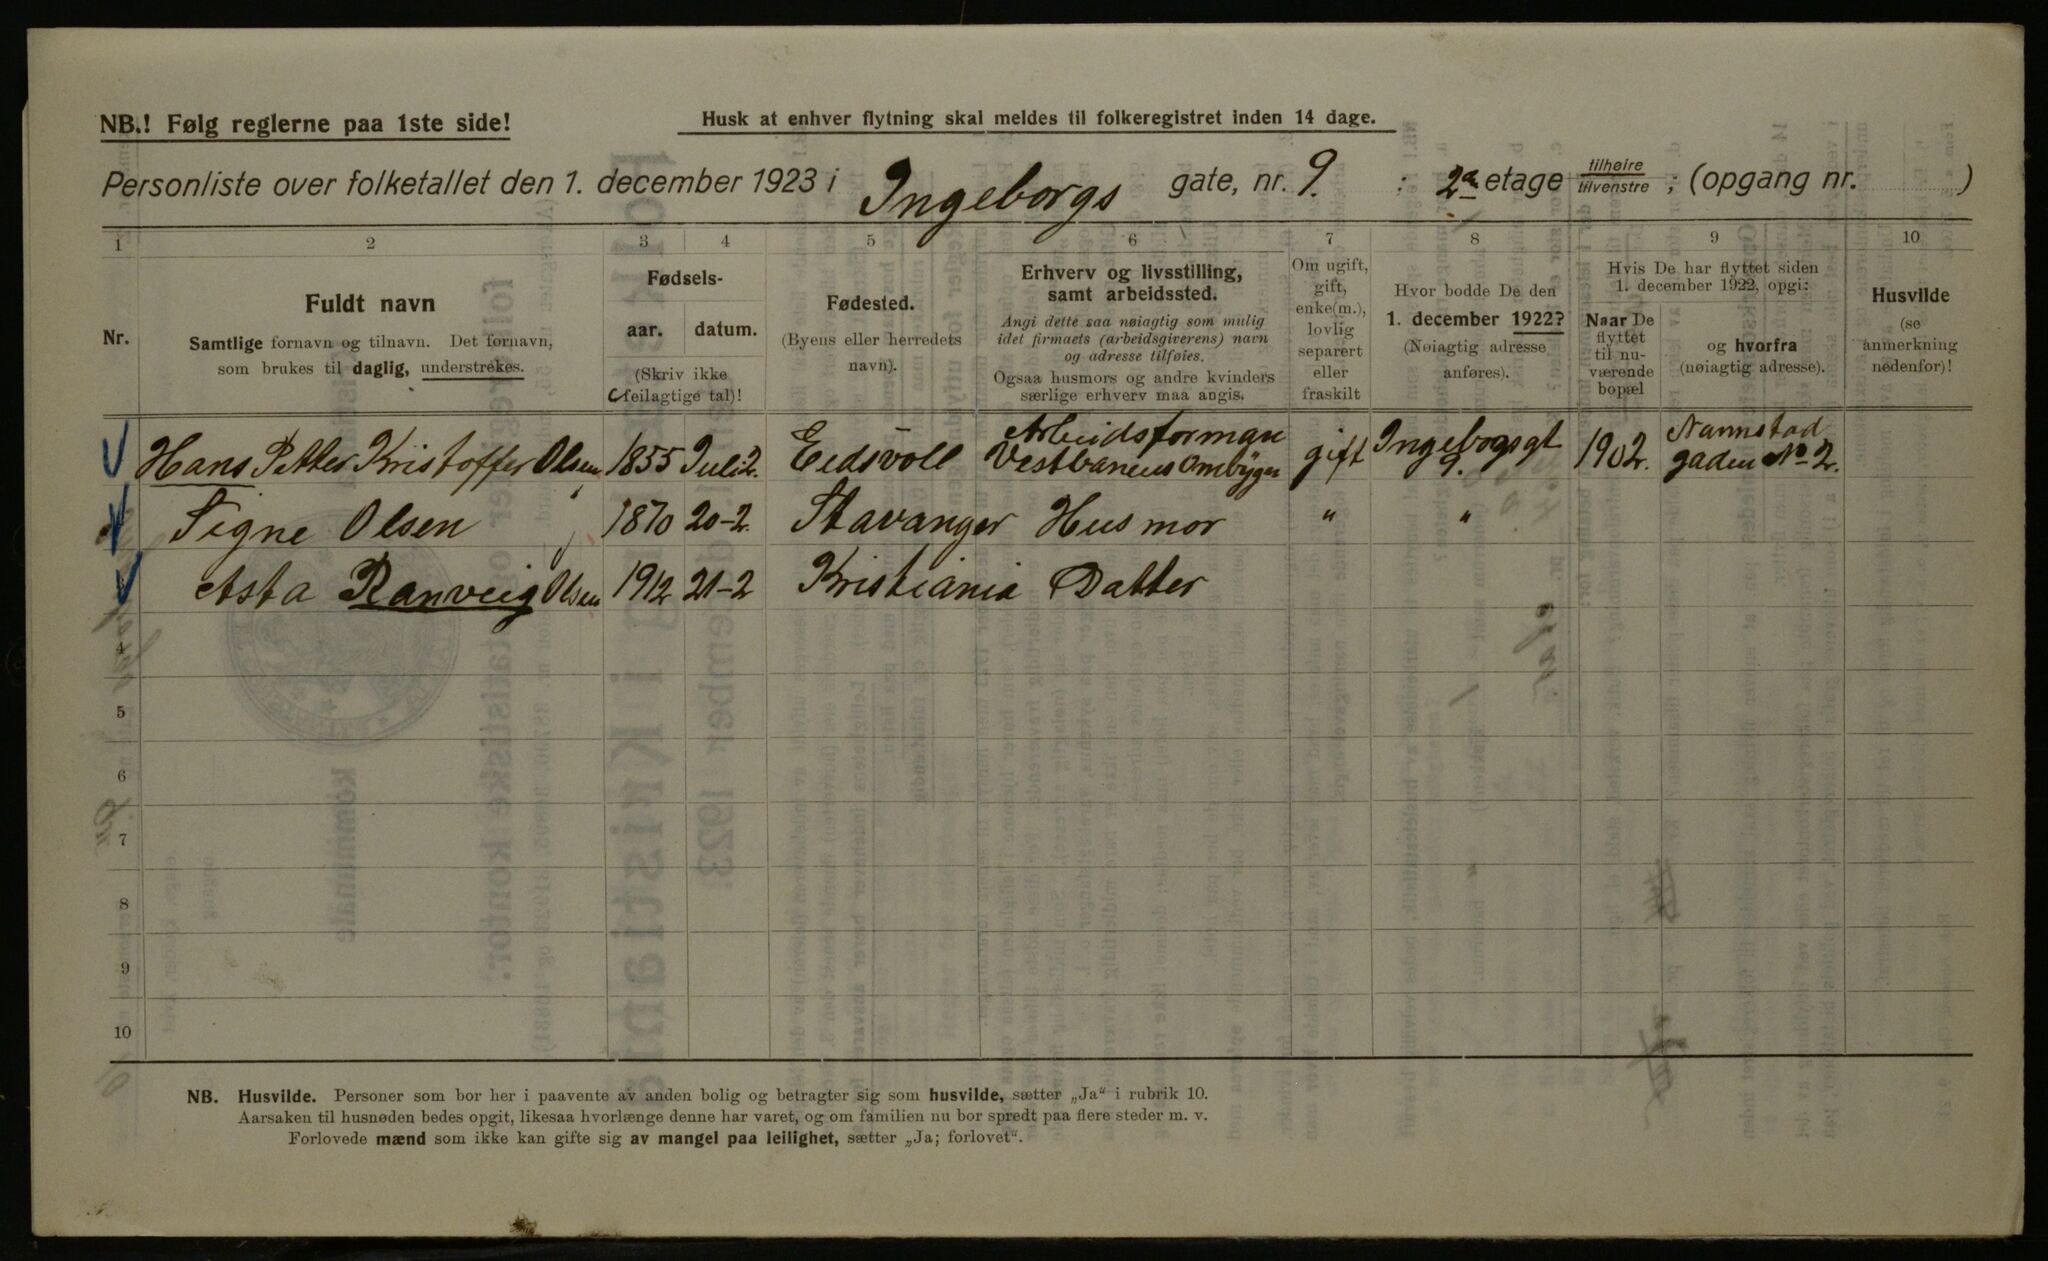 NB.! Følg reglerne paa 1ste side!
Husk at enhver flytning skal meldes til folkeregistret inden 14 dage.
Personliste over folketallet den 1. december 1923 i Ingeborgs gate, nr. 9. : 2den etage tilhøire tilvenstre ; (opgang nr. )
1 2 3 4 5 6 7 8 9 10
Nr.
Fuldt navn
Samtlige fornavn og tilnavn. Det fornavn,
som brukes til daglig, understrekes.
Fødsels-
aar. datum.
(Skriv ikke
feilagtige tal)!
Fødested.
(Byens eller herredets
navn).
Erhverv og livsstilling,
samt arbeidssted.
Angi dette saa nøiagtig som mulig
idet firmaets (arbeidsgiverens) navn
og adresse tilføies.
Ogsaa husmors og andre kvinders
særlige erhverv maa angis.
Om ugift,
gift,
enke(m.),
lovlig
separert
eller
fraskilt
Hvor bodde De den
1. december 1922?
(Nøiagtig adresse
anføres).
Hvis De har flyttet siden
1. december 1922, opgi:
Naar De
flyttet
til nu-
værende
bopæl
og hvorfra
(nøiagtig adresse).
Husvilde
(se
anmerkning
nedenfor)!
Hans Petter Kristoffer Olsen 1855 Juli 2. Eidsvoll Arbeidsforman Vestbanens Ombygn gift Ingeborgsgt 9. 1902. Nannstad gaden No 2.
Signe Olsen 1870 20-2. Stavanger Husmor " "
Asta Ranveig Olsen 1912 21-2 Kristiania Datter
4
5
6
7
8
9
10
NB. Husvilde. Personer som bor her i paavente av anden bolig og betragter sig som husvilde, sætter „Ja“ i rubrik 10.
Aarsaken til husnøden bedes opgit, likesaa hvorlænge denne har varet, og om familien nu bor spredt paa flere steder m. v.
Forlovede mænd som ikke kan gifte sig av mangel paa leilighet, sætter „Ja; forlovet“.